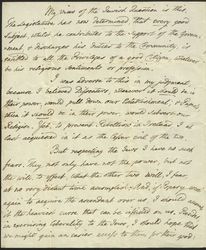 My view of the Jewish Question is this.
The Legislature has now determined that every good
Subject, whilst he contributes to the support of the Govern-
ment & discharges his duties to the Community, is
entitled to all the Privileges of a good Citizen, whatever
be his religious sentiments or profession.
I was adverse to this in my judgment
because I believed Dissenters, whenever it should be in
their power, would pull down our Establishment; & Papists,
when it should be in their power, would subvert our
Religion. Yet, to prevent Rebellion in Ireland I at
last acquiesced in it as the safer evil of the two.
But respecting the Jews I have no such
fears. They not only have not the power, but not
the wish to effect what the other two will, I fear,
at no very distant time accomplish. And if Popery were
again to acquire the ascendant over us, I should
it the heaviest curse that can be inflicted on us. Besides,
in exercising liberality to the Jews, I should hope that
we might gain an easier access to them for their good: